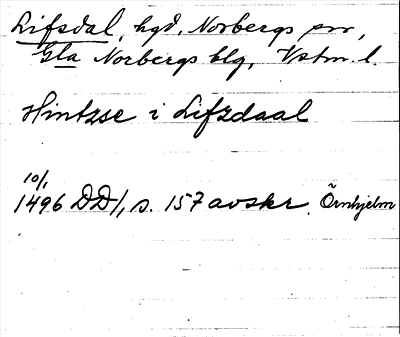 Lifsdal, hgd, Norbergs sn,
Gla Norbergs blg, Vstm. l.
Hintzse i Lifzdaal
10/1
1496 DD1, s. 157 avskr. Örnhjelm